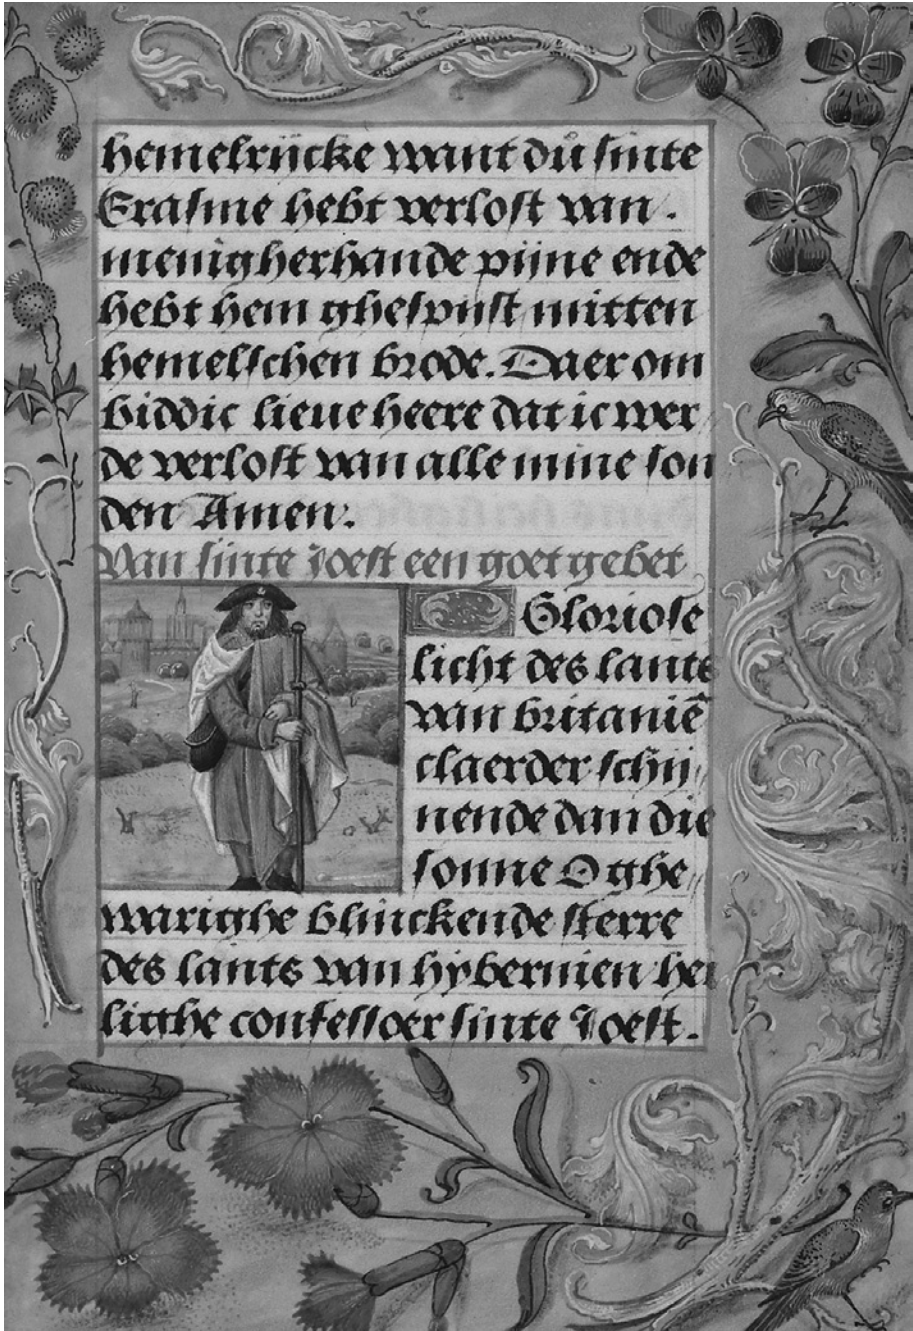 hemelrijcke want du sinte
Erasme hebt verlost van.
menigherhande pijne ende
hebt hem ghespijst mitten
hemelschen brode. Daer om
biddic lieue heere dat ic wer
de verlost van alle mine son
den Amen.
Van sinte Joest een goet gebet
O Gloriose
licht des lants
van britaniē
claerder schij
nende dan die
sonne O ghe
warighe blinckende sterre
des lants van hybernien hei
lighe confessoer sinte Joest.